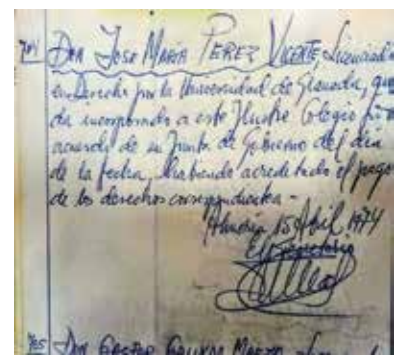 Don Jose María Perez Vicente, Licenciado
en Derecho por la Universidad de Granada, que
da incorporado a este Ilustre Colegio por
acuerdo de su Junta de Gobierno del día
de la fecha, habiendo acreditado el pago
de los derechos correspondientes -
Almería 15 Abril 1974
El Secretario
Don Gaspar